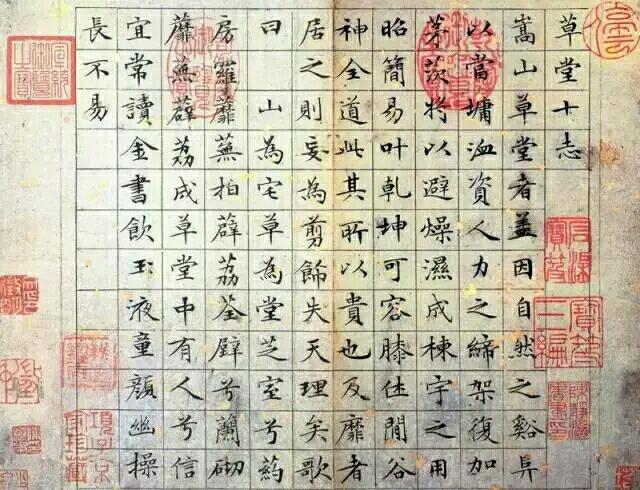 草堂十志
嵩山草堂者盖因自然之谿阜
以當墉洫資人力之締架復加
茅茨将以避燥濕成棟宇之用
昭簡易叶乾坤可容膝休閒谷
神全道此其所以貴也及靡者
居之則妄為剪飾失天理矣歌
曰 山為宅草為堂芝室兮葯
房羅蘼蕪拍薜荔荃壁兮蘭砌
蘼蕪薜荔成草堂中有人兮信
宜常讀金書飲玉液童顏幽操
長不易
石渠寶笈
寶笈三編
宣統御覽之寶
項子京家珍藏